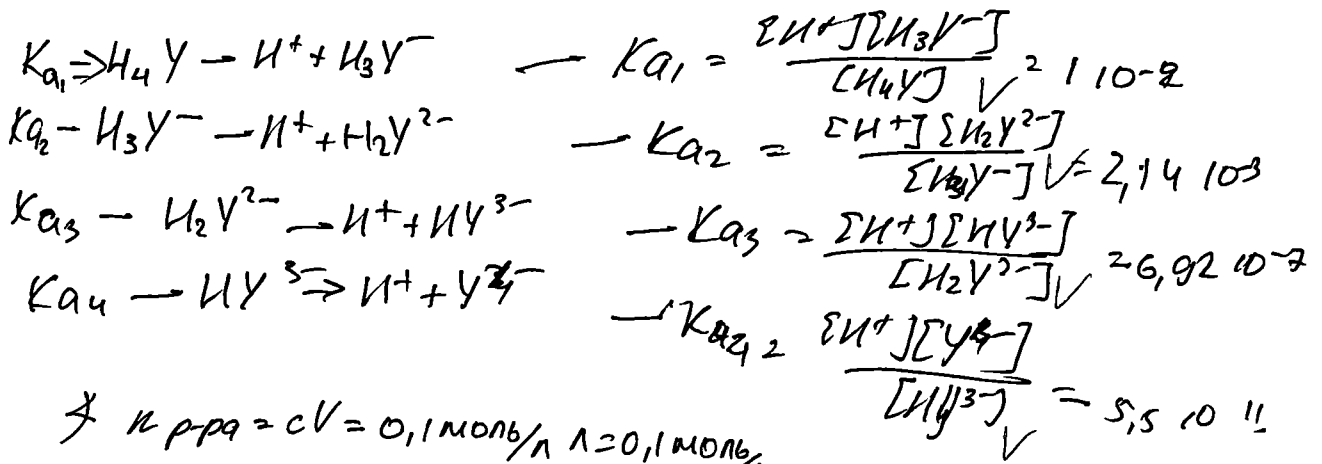 Ka₁ ⇒ H₄Y — H⁺ + H₃Y⁻ — Ka₁ = [H⁺][H₃Y⁻] / [H₄Y] = 1 10⁻²
Ka₂ - H₃Y⁻ — H⁺ + H₂Y²⁻ — Ka₂ = [H⁺][H₂Y²⁻] / [H₃Y⁻] = 2,14 10⁻³
Ka₃ — H₂Y²⁻ — H⁺ + HY³⁻ — Ka₃ = [H⁺][HY³⁻] / [H₂Y²⁻] = 6,92 10⁻⁷
Ka₄ — HY³⁻ ⇒ H⁺ + Y⁴⁻ — Ka₄ = [H⁺][Y⁴⁻] / [HY³⁻] = 5,5 10 11
n р-ра = cV = 0,1 моль/л л = 0,1 моль